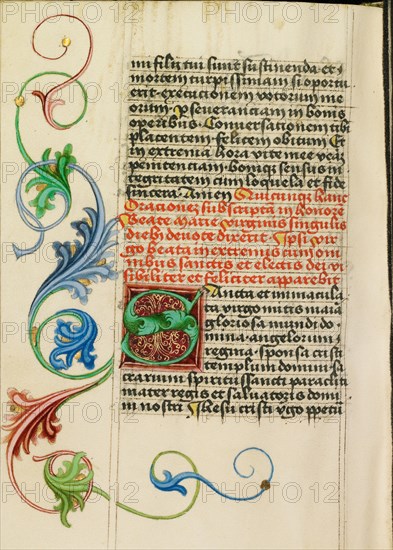 mi filij tui sunt sustinenda et
mortem turpissimam si oportu
erit execucionem votorum me
orum perseveranciam in bonis
operibus Conversationem tibi
placentem felicem obitum Et
in extrema hora vite mee veram
penitenciam bonique sensus in
tegritatem cum loquela et fide
sincera Amen Quicunque hanc
Orationem subscriptam in honore
Beate Marie virginis singulis
diebus devote dixerit Ipsi vir
go beata in extremis cum om
nibus sanctis et electis dei vi
sibiliter et feliciter apparebit
Sancta et immacula
ta virgo mitis maia
gloriosa mundi do
mina angelorum
regina sponsa cristi
templum domini sa
crarium spiritus sancti paracliti
mater regis et salvatoris domi
ni nostri Jhesu cristi virgo perpetu
PHOTO 12